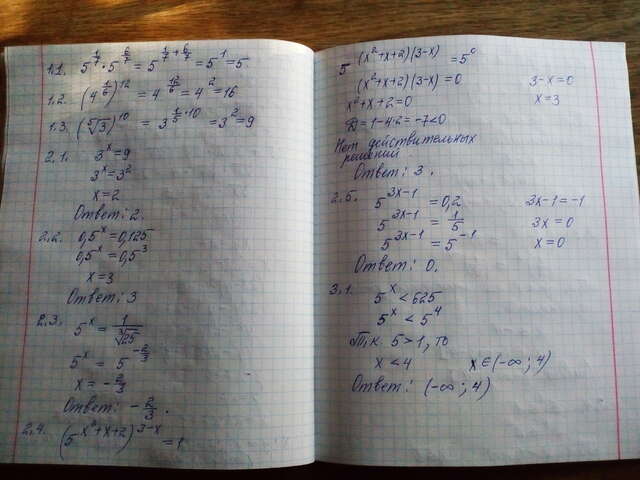 1.1. 5^(1/7) · 5^(6/7) = 5^(1/7 + 6/7) = 5^1 = 5
1.2. (4^(1/6))^12 = 4^(12/6) = 4^2 = 16
1.3. (⁵√3)^10 = 3^(1/5 · 10) = 3^2 = 9
2.1. 3^x = 9
3^x = 3^2
x = 2
Ответ: 2.
2.2. 0,5^x = 0,125
0,5^x = 0,5^3
x = 3
Ответ: 3
2.3. 5^x = 1/∛25
5^x = 5^(-2/3)
x = -2/3
Ответ: -2/3.
2.4. (5^(x²+x+2))^(3-x) = 1
5^((x²+x+2)(3-x)) = 5^0
(x²+x+2)(3-x) = 0 3-x=0
x²+x+2=0 x=3
Д = 1-4·2 = -7<0
Нет действительных
решений.
Ответ: 3.
2.5. 5^(3x-1) = 0,2 3x-1 = -1
5^(3x-1) = 1/5 3x = 0
5^(3x-1) = 5^(-1) x = 0
Ответ: 0.
3.1. 5^x < 625
5^x < 5^4
Т.к. 5 > 1, то
x < 4 x ∈ (-∞; 4)
Ответ: (-∞; 4)